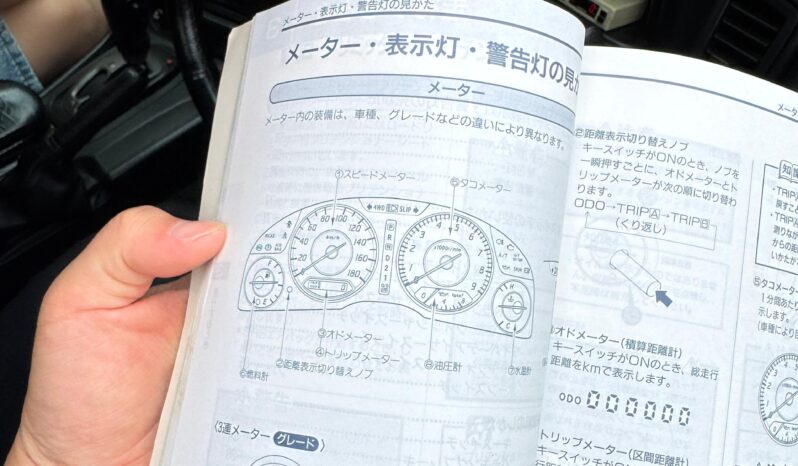 メーター・表示灯・警告灯の見かた
メーター・表示灯・警告灯の見か
メーター
メーター内の装備は、車種、グレードなどの違いにより異なります。
①スピードメーター
⑤タコメーター
4WD SLIP
80 100
60 120
40 140
20 160
180
km/h
P
R
N
D
2
L
x1000r/min
0 1 2 3 4 5 6 7 8 9
E
H
C
③オドメーター
④トリップメーター
②距離表示切り替えノブ
⑥燃料計
⑧油圧計
⑦水温計
〈3連メーター グレード〉
②距離表示切り替えノブ
キースイッチがONのとき、ノブを
一瞬押すごとに、オドメーターとト
リップメーターが次の順に切り替わ
ります。
ODO→TRIP A→TRIP B
(くり返し)
オドメーター(積算距離計)
キースイッチがONのとき、総走行
距離をkmで表示します。
ODO 000000
トリップメーター(区間距離計)
キースイッチがONのとき
メータ
知識
・TRIP
戻すと
・TRIP
測りなが
からの距
いかたが
⑤タコメータ
1分間あた
示します。
(車種により